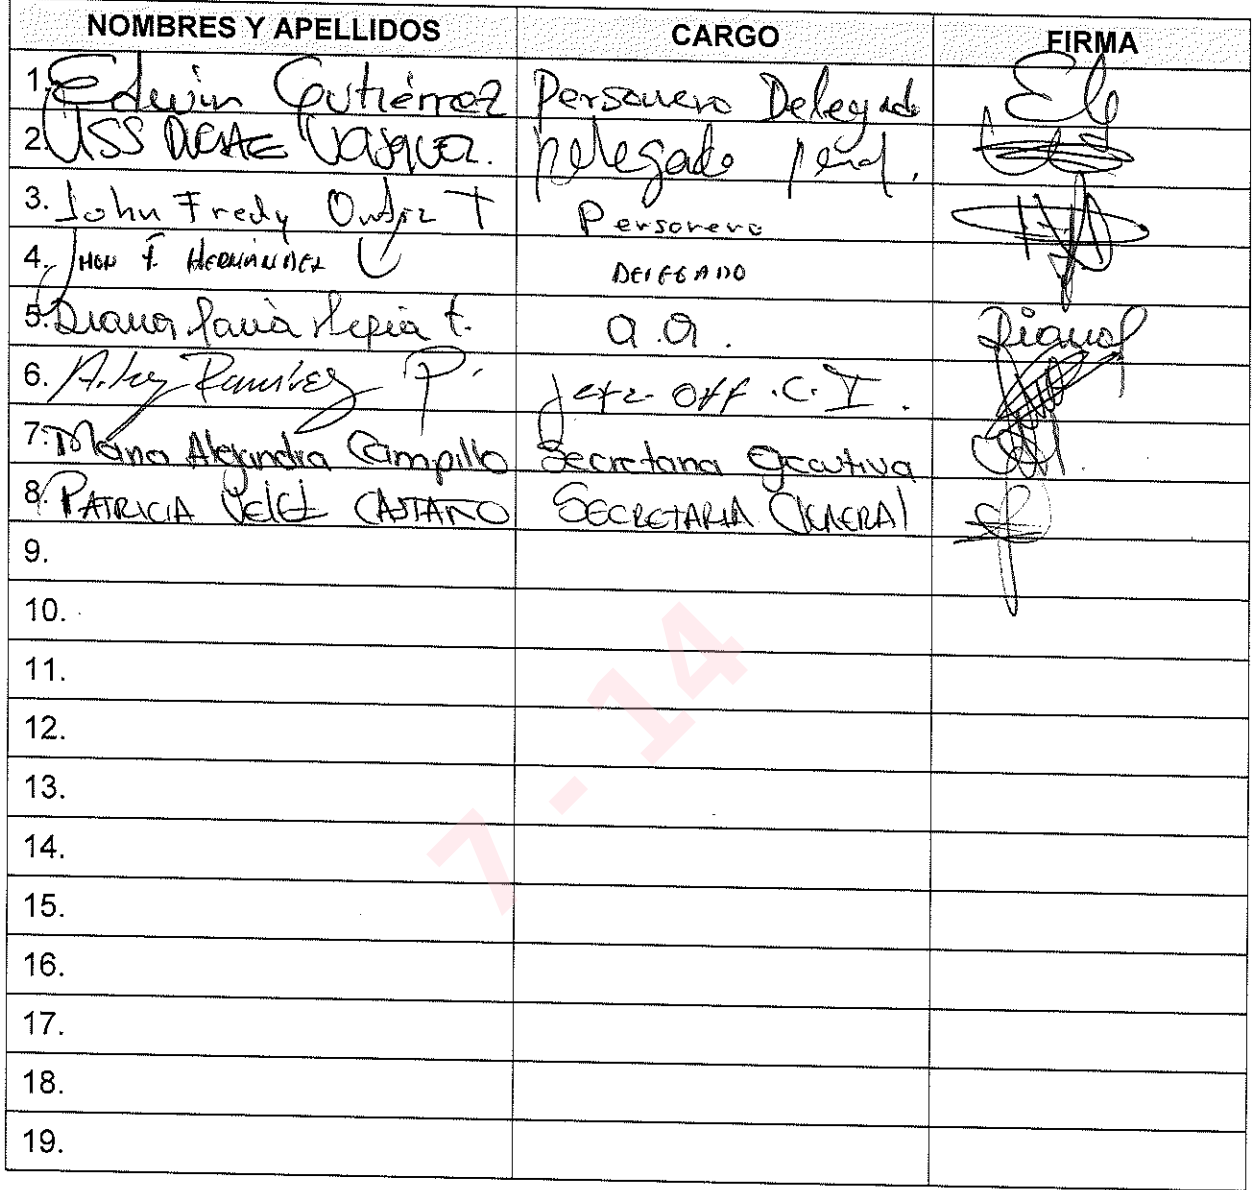 NOMBRES Y APELLIDOS CARGO FIRMA
1. Edwin Gutiérrez Personero Delegado
2. Vasquez. Delegado penal.
3. John Fredy T Personero
4. Jhon F. HERNÁNDEZ DELEGADO
5. Diana t. a.a. Diana
6. Ramírez P. Jefe Off. C. I.
7. Maria Alejandra Campillo Secretaria Ejecutiva
8. PATRICIA VELEZ CASTAÑO SECRETARIA GENERAL
9.
10.
11.
12.
13.
14.
15.
16.
17.
18.
19.
7 - 14